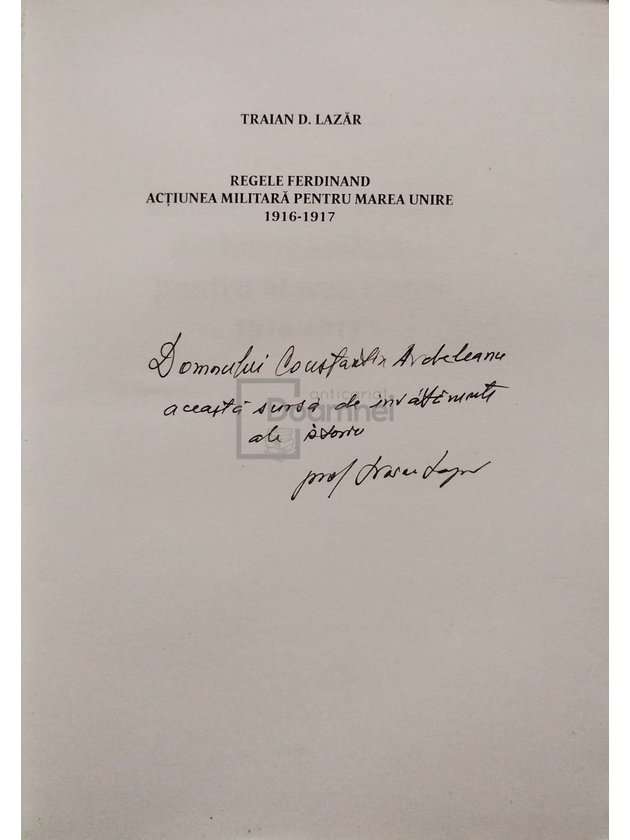 TRAIAN D. LAZĂR
REGELE FERDINAND
ACȚIUNEA MILITARĂ PENTRU MAREA UNIRE
1916-1917
Domnului Constantin Ardeleanu
această sursă de învățăminte
ale istoriei
prof Traian Lazăr
anticariat
Doamnei